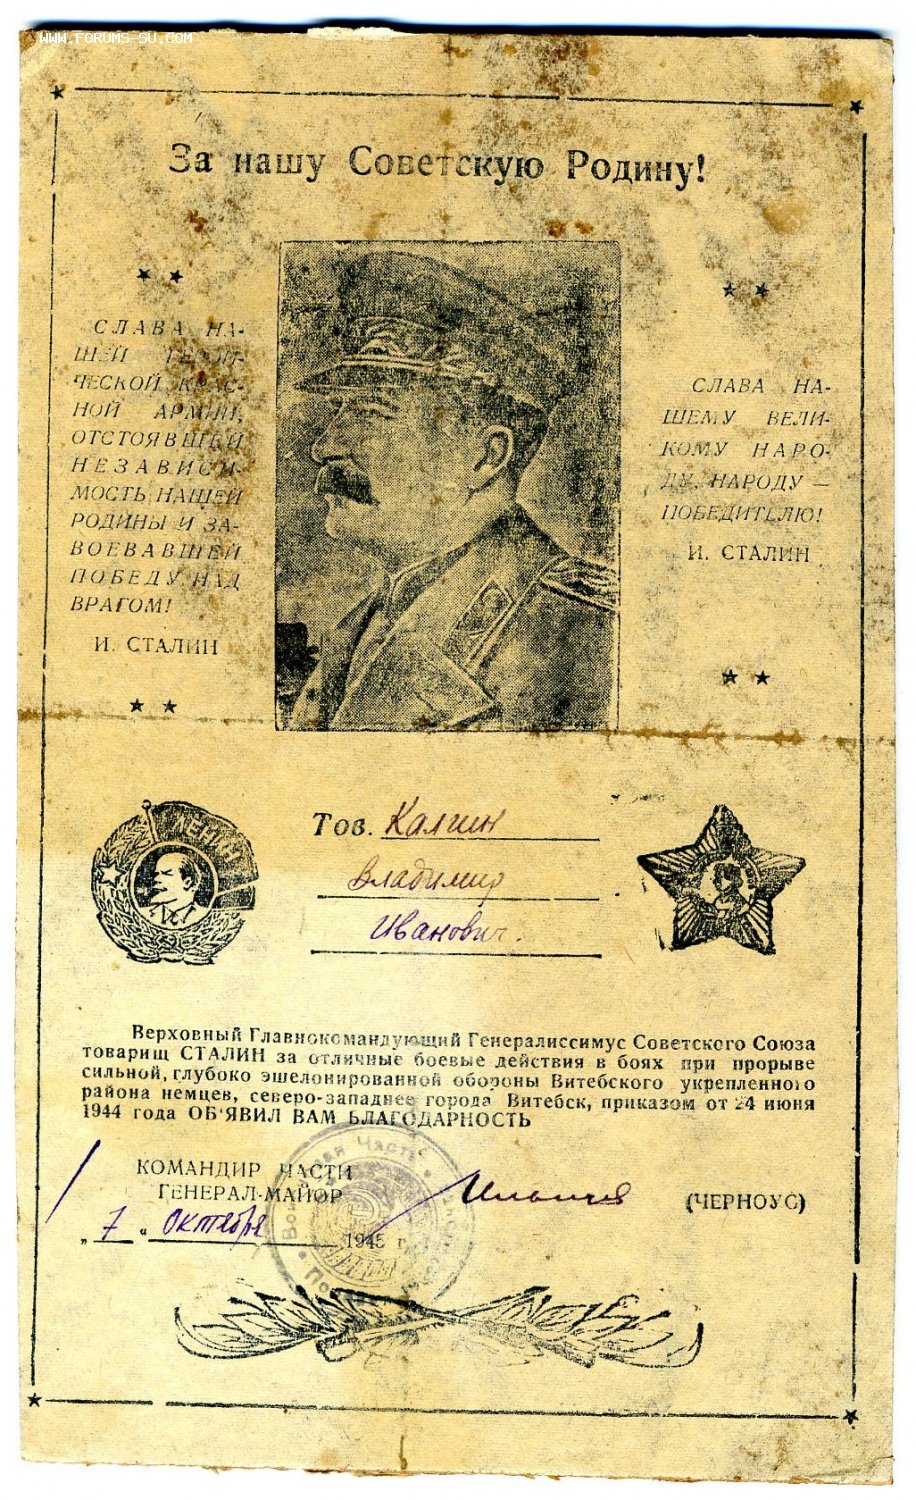 WWW.FORUMS-SU.COM
За нашу Советскую Родину!
СЛАВА НА-
ШЕЙ ГЕРОИ-
ЧЕСКОЙ КРАС-
НОЙ АРМИИ,
ОТСТОЯВШЕЙ
НЕЗАВИСИ-
МОСТЬ НАШЕЙ
РОДИНЫ И ЗА-
ВОЕВАВШЕЙ
ПОБЕДУ НАД
ВРАГОМ!
И. СТАЛИН
СЛАВА НА-
ШЕМУ ВЕЛИ-
КОМУ НАРО-
ДУ, НАРОДУ —
ПОБЕДИТЕЛЮ!
И. СТАЛИН
ЛЕНИН
Тов. Калгин
Владимир
Иванович.
Верховный Главнокомандующий Генералиссимус Советского Союза
товарищ СТАЛИН за отличные боевые действия в боях при прорыве
сильной, глубоко эшелонированной обороны Витебского укрепленного
района немцев, северо-западнее города Витебск, приказом от 24 июня
1944 года ОБ'ЯВИЛ ВАМ БЛАГОДАРНОСТЬ
КОМАНДИР ЧАСТИ
ГЕНЕРАЛ-МАЙОР (ЧЕРНОУС)
„ 7 " октября 1945 г.